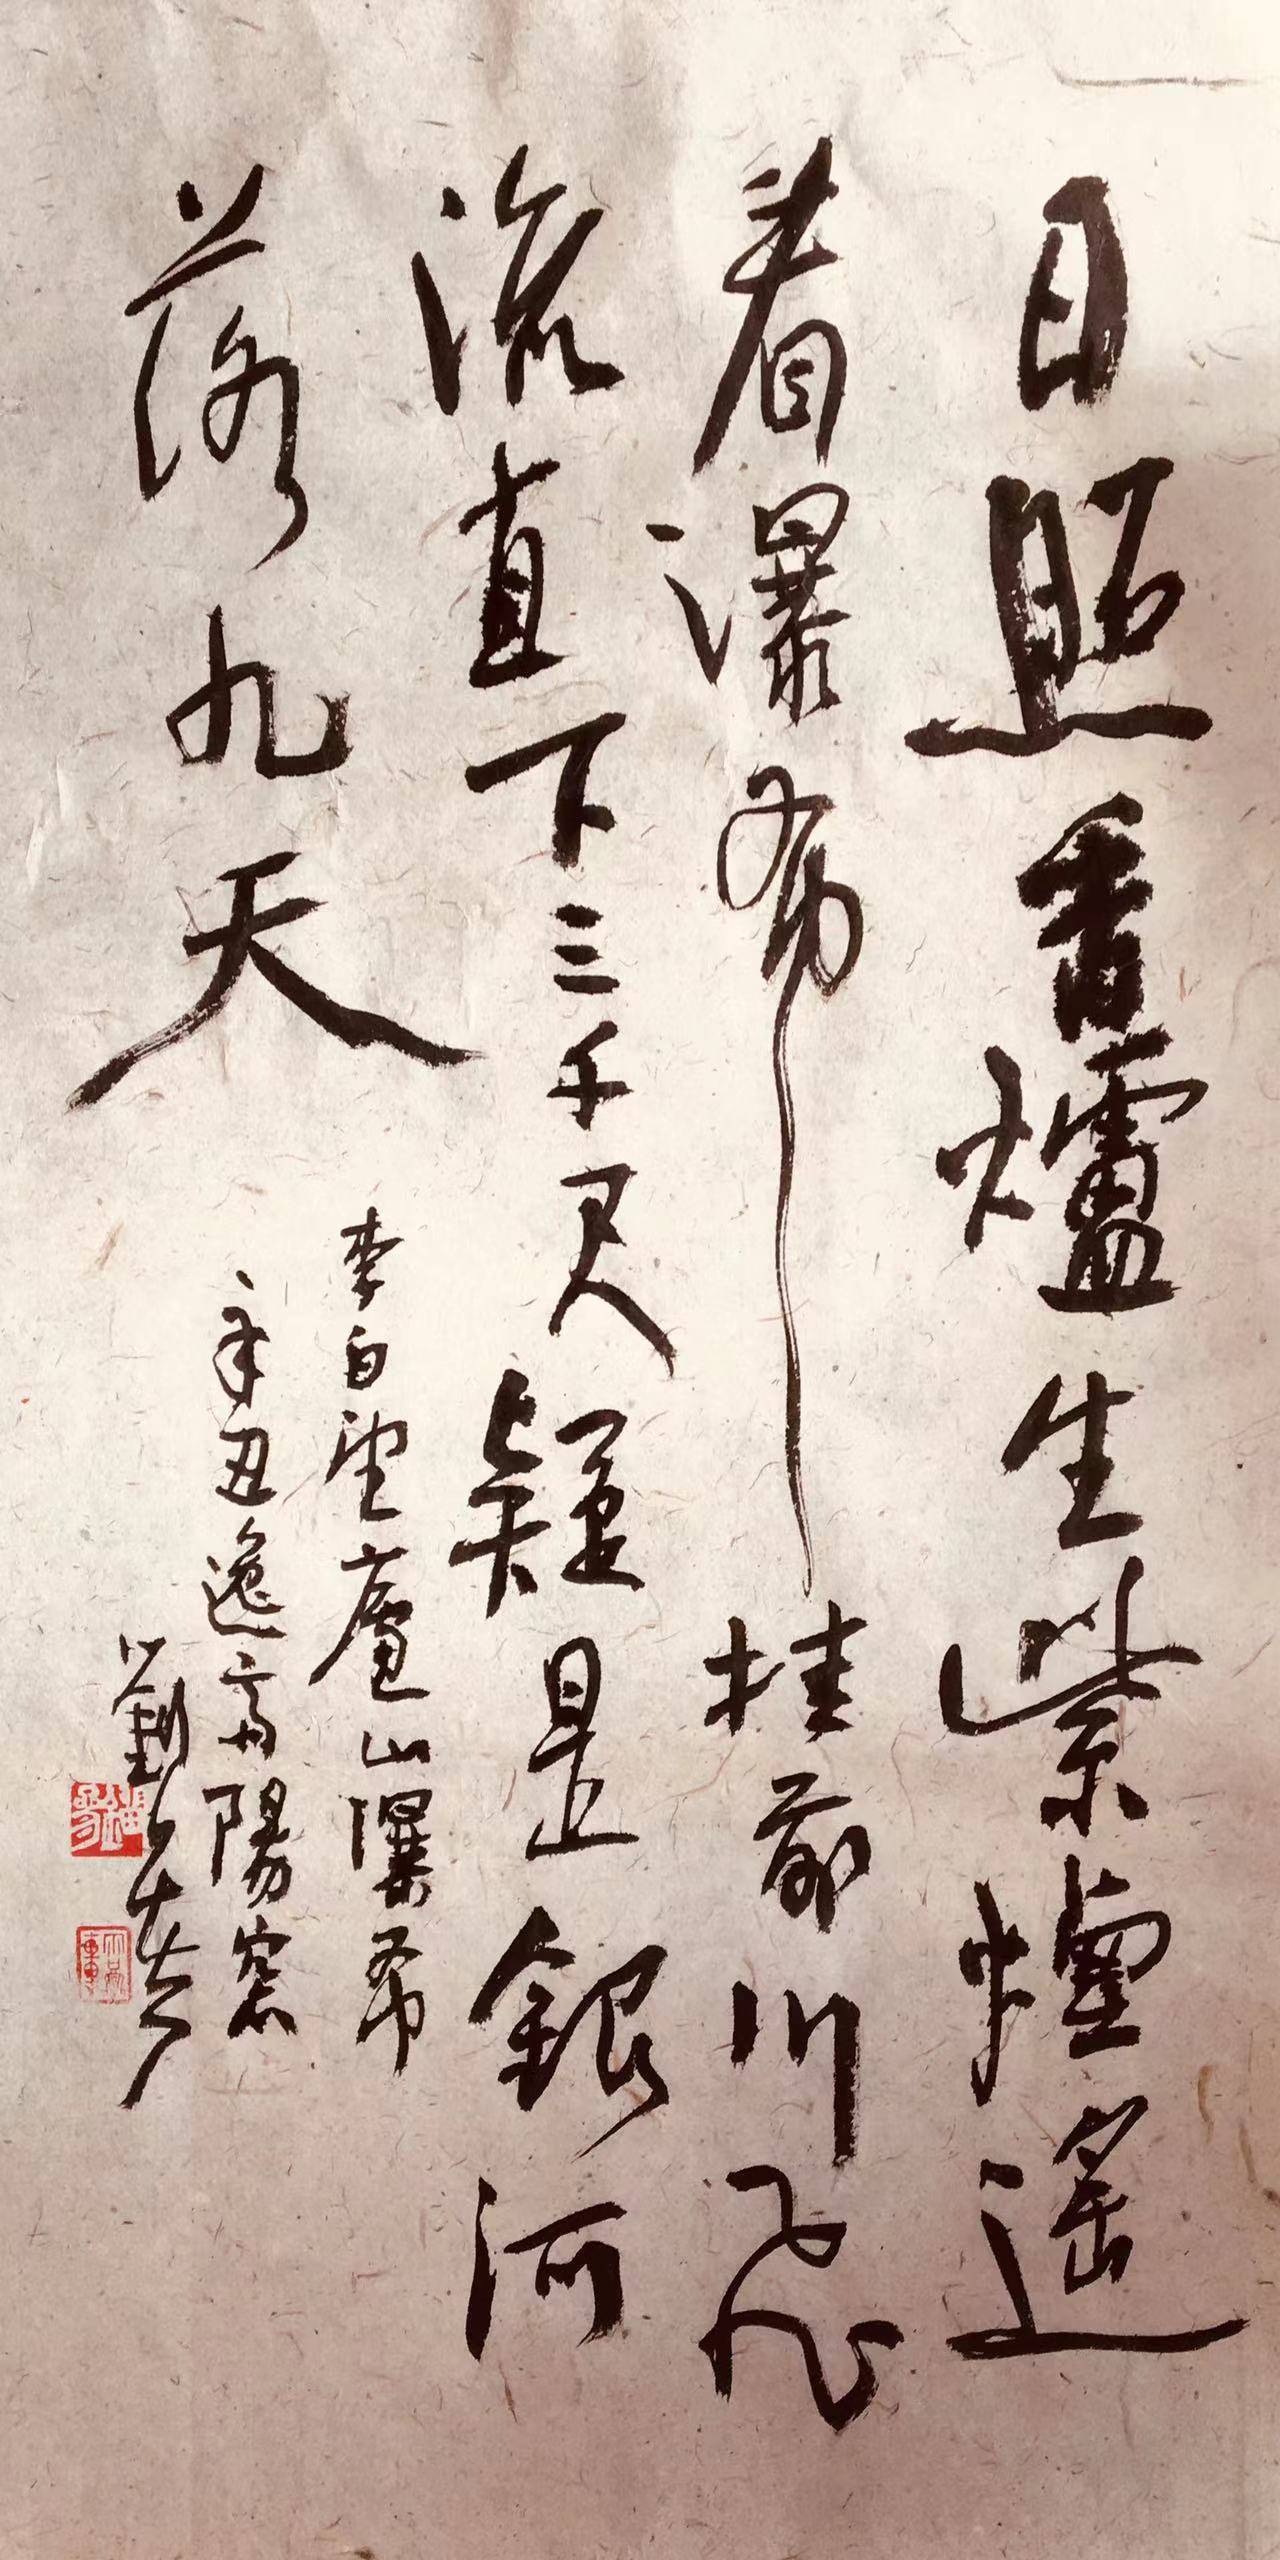 日照香爐生紫煙遙
看瀑布掛前川飛
流直下三千尺疑是銀河
落九天
李白望廬山瀑布
辛丑逸
劉